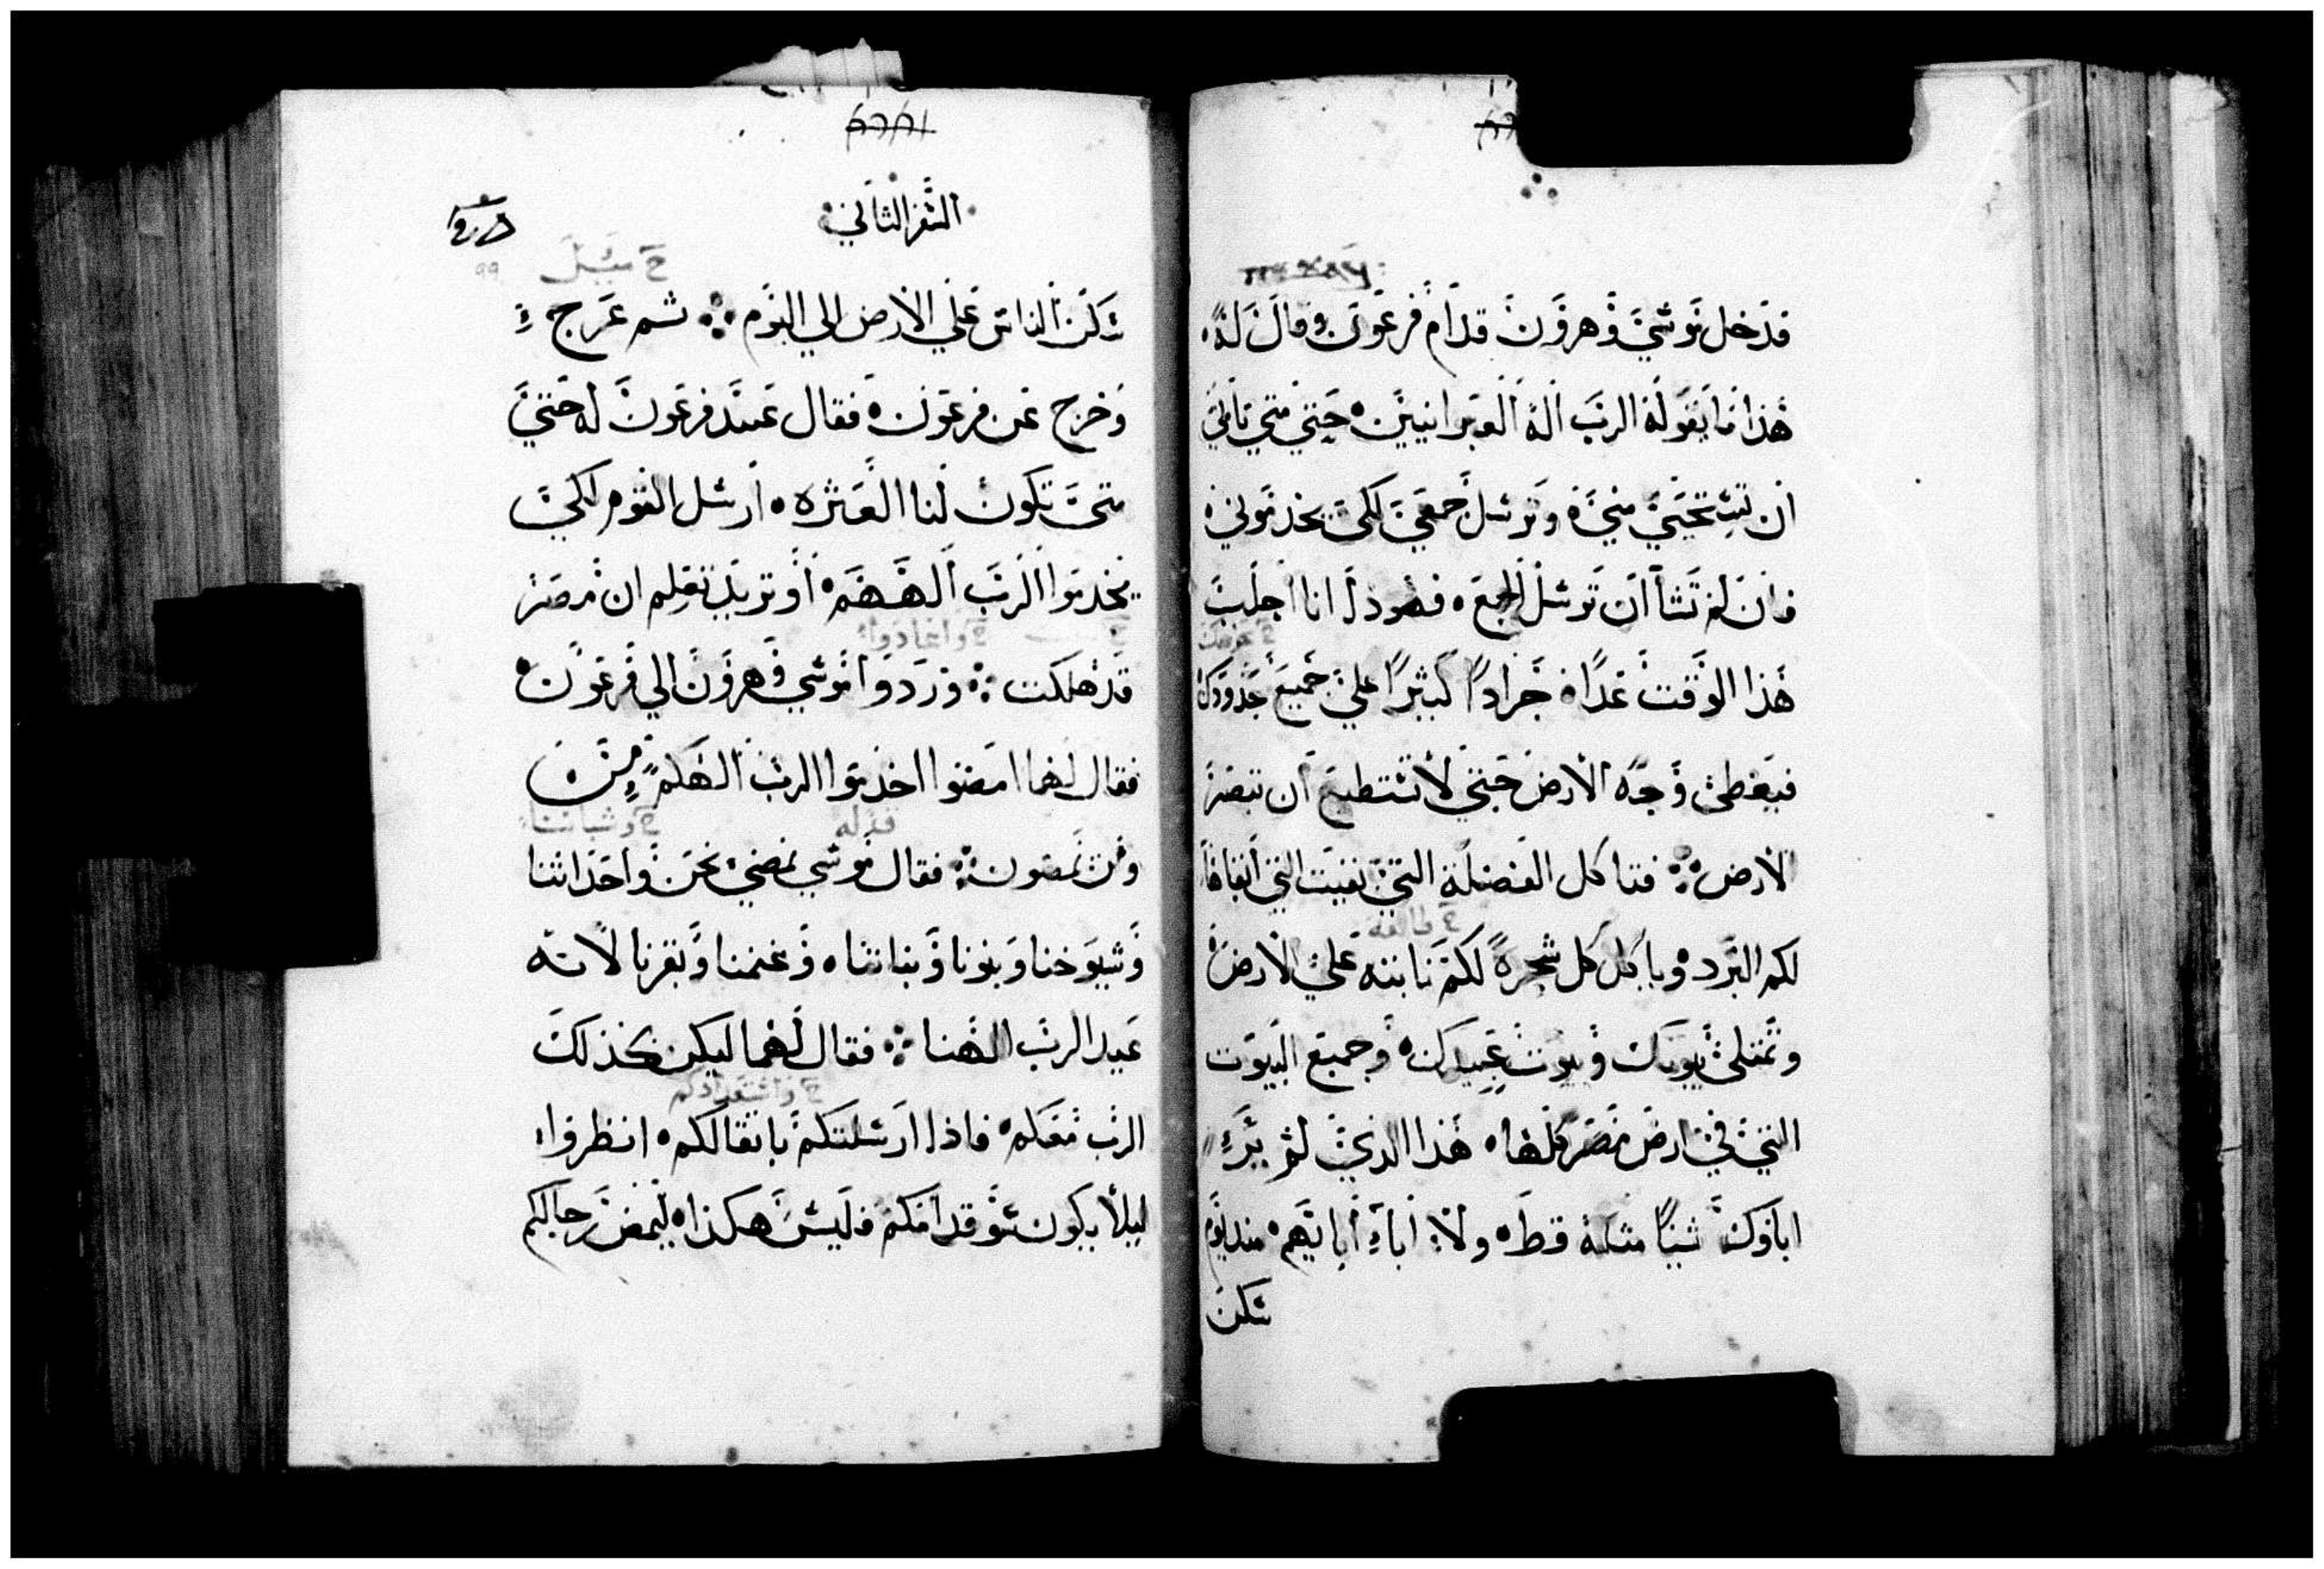 فدخل موسي وهرون قدام فرعون وقال له
هذا ما يقوله الرب اله العبرانيين حتي متي تابي
ان تستحي مني وترسل جمعي لكي يخدموني
فان لم تشا ان ترسل الجمع فهوذا انا اجلب
هذا الوقت غدا جرادا كثيرا علي جميع حدودك
فيغطي وجه الارض حتي لا تستطيع ان تبصر
الارض فتاكل الفضلة التي بقيت التي ابقاها
لكم البرد وياكل كل شجرة لكم نابته علي الارض
وتمتلي بيوتك وبيوت عبيدك وجميع البيوت
التي في ارض مصر كلها هذا الذي لم ير
اباوك شيا مثله قط ولا اباء ابايهم منذ يوم
سكن
السفر الثاني
٩٩
سكن الناس علي الارض الي اليوم ثم عرج
وخرج عن فرعون فقال عبيد فرعون له حتي
متي تكون لنا العثره ارسل القوم لكي
يخدموا الرب الههم او تريد تعلم ان مصر
ح واعادوا
قد هلكت وردوا موسي وهرون الي فرعون
فقال لهما امضوا اخدموا الرب الهكم من
ح وشباننا
ومن تمضون فقال موسي نمضي نحن واحداثنا
وشيوخنا وبنونا وبناتنا وغنمنا وبقرنا لانه
عيد الرب الهنا فقال لهما ليكن كذلك
الرب معكم فاذا ارسلتكم باثقالكم انظروا
ليلا يكون سو قدامكم فليس هكذا ليمض رجالكم